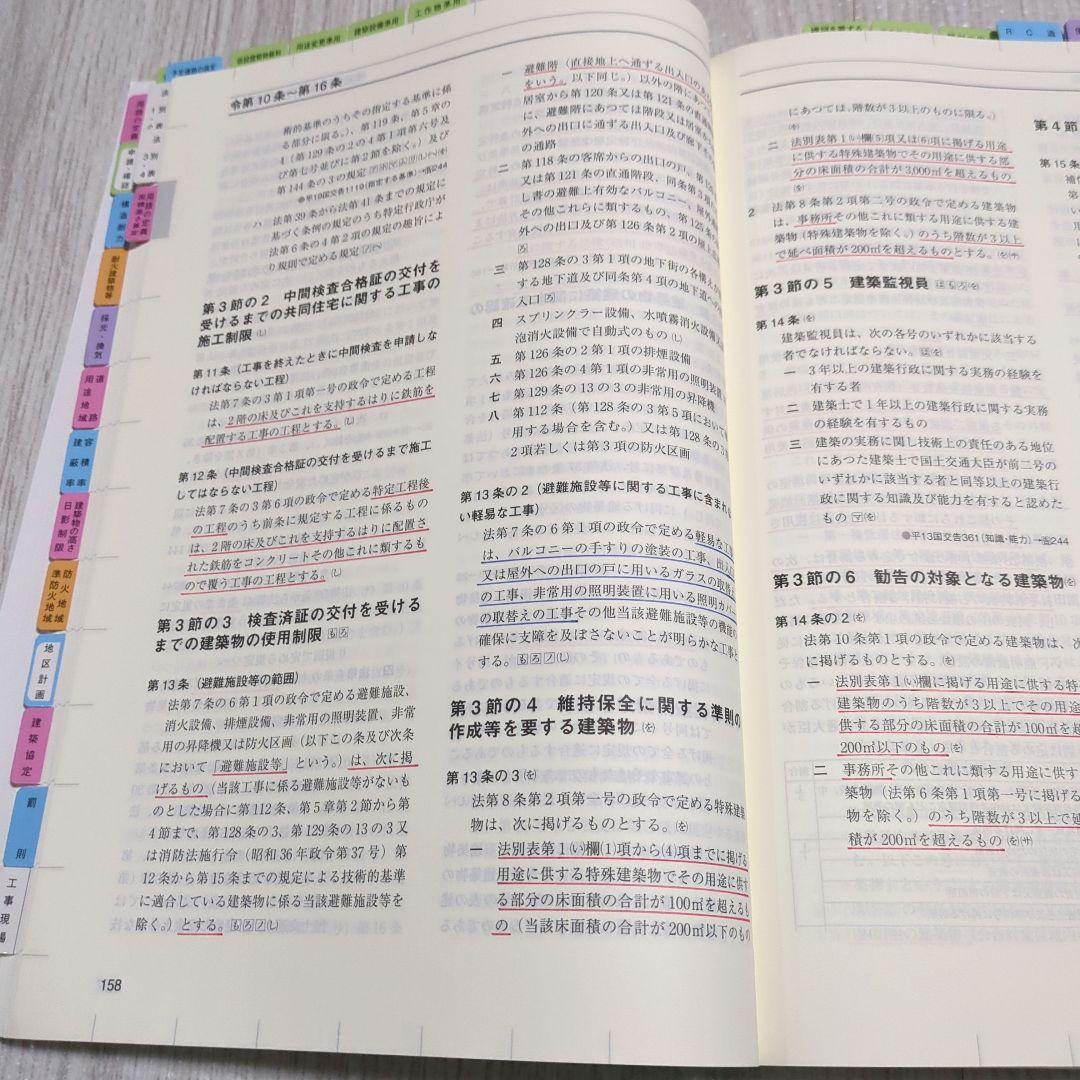 工作物準用
建築設備準用
用途変更準用
仮設建築物緩和
令第10条〜第16条
術的基準のうちその指定する基準に係
る部分に限る。)、第119条、第5章の
4(第129条の2の4第1項第六号及
び第七号並びに第2節を除く。)及び
第144条の3の規定
●平19国交告1119(指定する基準)→告244
ハ 法第39条から法第41条までの規定に
基づく条例の規定のうち特定行政庁が
法第6条の4第2項の規定の趣旨によ
り規則で定める規定
第3節の2 中間検査合格証の交付を
受けるまでの共同住宅に関する工事の
施工制限(し)
第11条(工事を終えたときに中間検査を申請しな
ければならない工程)
法第7条の3第1項第一号の政令で定める工程
は、2階の床及びこれを支持するはりに鉄筋を
配置する工事の工程とする。(し)
第12条(中間検査合格証の交付を受けるまで施工
してはならない工程)
法第7条の3第6項の政令で定める特定工程後
の工程のうち前条に規定する工程に係るもの
は、2階の床及びこれを支持するはりに配置さ
れた鉄筋をコンクリートその他これに類するも
ので覆う工事の工程とする。(し)
第3節の3 検査済証の交付を受ける
までの建築物の使用制限 もろ
第13条(避難施設等の範囲)
法第7条の6第1項の政令で定める避難施設、
消火設備、排煙設備、非常用の照明装置、非常
用の昇降機又は防火区画(以下この条及び次条
において「避難施設等」という。)は、次に掲
げるもの(当該工事に係る避難施設等がないも
のとした場合に第112条、第5章第2節から第
4節まで、第128条の3、第129条の13の3又
は消防法施行令(昭和36年政令第37号)第
12条から第15条までの規定による技術的基準
に適合している建築物に係る当該避難施設等を
除く。)とする。もろノ(し)
158
一 避難階(直接地上へ通ずる出入口のあ
をいう。以下同じ。)以外の階にあつ
居室から第120条又は第121条の直通
に、避難階にあつては階段又は居室か
外への出口に通ずる出入口及び廊下
の通路
二 第118条の客席からの出口の戸、第
又は第121条の直通階段、同条第3項
し書の避難上有効なバルコニー、屋外
その他これらに類するもの、第125条
外への出口及び第126条第2項の屋上
ろ
三 第128条の3第1項の地下街の各構えが
する地下道及び同条第4項の地下道への
入口 ろ
四 スプリンクラー設備、水噴霧消火設備又
泡消火設備で自動式のもの(し)
五 第126条の2第1項の排煙設備
六 第126条の4第1項の非常用の照明装置
七 第129条の13の3の非常用の昇降機
八 第112条(第128条の3第5項において
用する場合を含む。)又は第128条の3
2項若しくは第3項の防火区画
第13条の2(避難施設等に関する工事に含まれな
い軽易な工事)
法第7条の6第1項の政令で定める軽易な工
は、バルコニーの手すりの塗装の工事、出入
又は屋外への出口の戸に用いるガラスの取替え
の工事、非常用の照明装置に用いる照明カバー
の取替えの工事その他当該避難施設等の機能の
確保に支障を及ぼさないことが明らかな工事と
する。もろノ(し)
第3節の4 維持保全に関する準則の
作成等を要する建築物 (を)
第13条の3 (を)
法第8条第2項第一号の政令で定める特殊建築
物は、次に掲げるものとする。(を)
一 法別表第1(い)欄(1)項から(4)項までに掲げる
用途に供する特殊建築物でその用途に供す
る部分の床面積の合計が100㎡を超えるも
の(当該床面積の合計が200㎡以下のもの
にあつては、階数が3以上のものに限る。)
(を)
二 法別表第1(い)欄(5)項又は(6)項に掲げる用途
に供する特殊建築物でその用途に供する部
分の床面積の合計が3,000㎡を超えるもの
(を)
2 法第8条第2項第二号の政令で定める建築物
は、事務所その他これに類する用途に供する建
築物(特殊建築物を除く。)のうち階数が3以上
で延べ面積が200㎡を超えるものとする。(を)(サ)
第3節の5 建築監視員
第14条(を)
建築監視員は、次の各号のいずれかに該当する
者でなければならない。
一 3年以上の建築行政に関する実務の経験を
有する者
二 建築士で1年以上の建築行政に関する実務
の経験を有するもの
三 建築の実務に関し技術上の責任のある地位
にあつた建築士で国土交通大臣が前二号の
いずれかに該当する者と同等以上の建築行
政に関する知識及び能力を有すると認めた
もの
●平13国交告361(知識・能力)→告244
第3節の6 勧告の対象となる建築物(を)
第14条の2(を)
法第10条第1項の政令で定める建築物は、次
に掲げるものとする。(を)
一 法別表第1(い)欄に掲げる用途に供する特
建築物のうち階数が3以上でその用途
供する部分の床面積の合計が100㎡を超
200㎡以下のもの(を)
二 事務所その他これに類する用途に供す
築物(法第6条第1項第一号に掲げる
物を除く。)のうち階数が3以上で延
積が200㎡を超えるもの(を)(サ)
第4節
第15条
RC造
用語の定義
申請・確認
構造耐力
耐火建築物等
採光・換気
道路
用途地域
容積率
建蔽率
建築物の高さ
日影制限
防火地域
準防火地域
地区計画
建築協定
罰則
工事現場
法別表1〜
法別表3 4